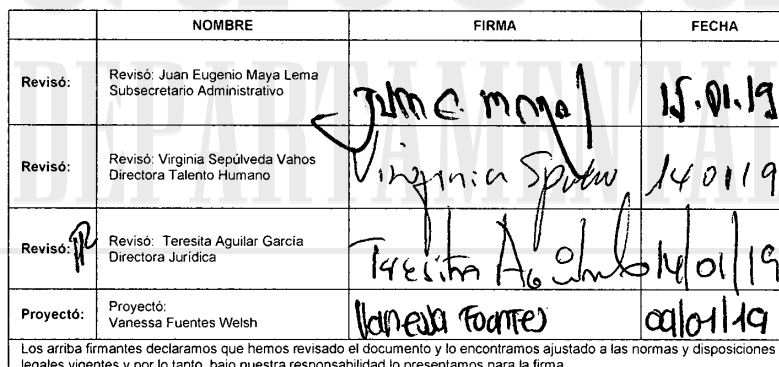 NOMBRE FIRMA FECHA
Revisó: Revisó: Juan Eugenio Maya Lema
Subsecretario Administrativo
15.01.19
Revisó: Revisó: Virginia Sepúlveda Vahos
Directora Talento Humano
Virginia 14 01 19
Revisó: Revisó: Teresita Aguilar García
Directora Jurídica
Teresita 14/01/19
Proyectó: Proyectó:
Vanessa Fuentes Welsh
Vanessa Fuentes 09/01/19
Los arriba firmantes declaramos que hemos revisado el documento y lo encontramos ajustado a las normas y disposiciones
legales vigentes y por lo tanto, bajo nuestra responsabilidad lo presentamos para la firma.
DEPARTAMENTAL